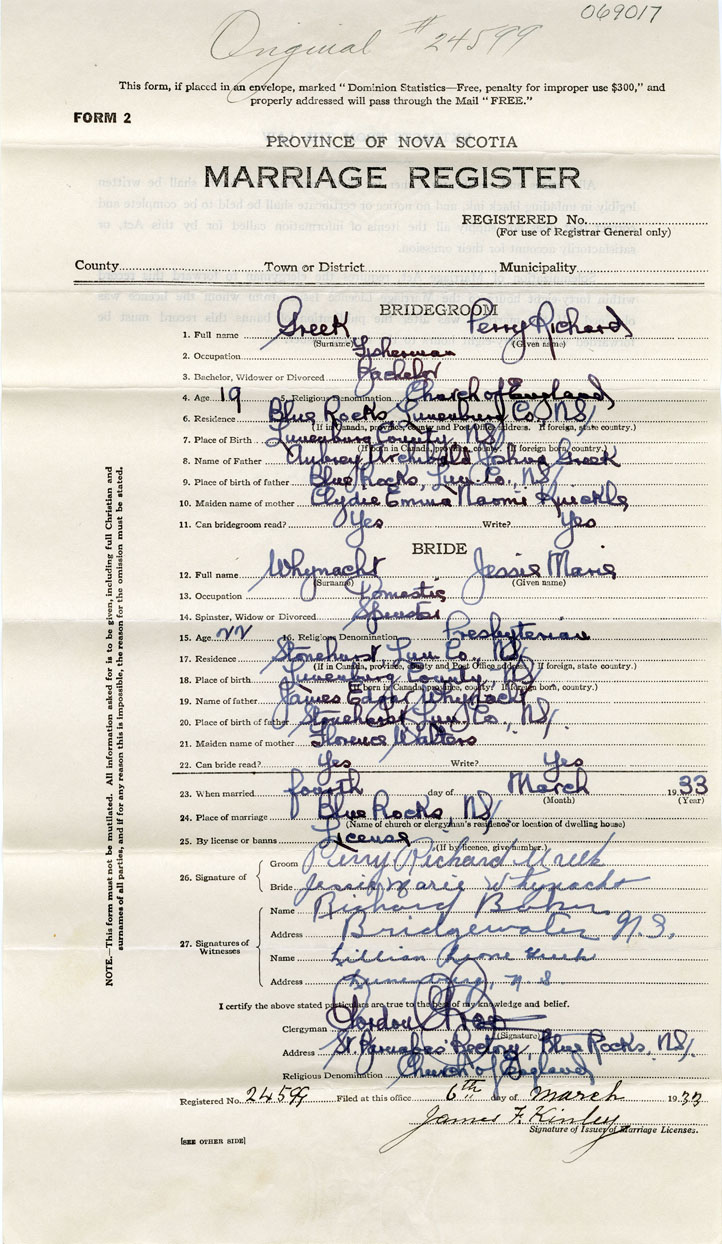 069017
Original # 24599
This form, if placed in an envelope, marked "Dominion Statistics—Free, penalty for improper use $300," and
properly addressed will pass through the Mail "FREE."
FORM 2
PROVINCE OF NOVA SCOTIA
MARRIAGE REGISTER
REGISTERED No.
(For use of Registrar General only)
County Town or District Municipality
BRIDEGROOM
1. Full name Greek Perry Richard
(Surname) (Given name)
2. Occupation Fisherman
3. Bachelor, Widower or Divorced Bachelor
4. Age 19 5. Religious Denomination Church of England
6. Residence Blue Rocks Lunenburg Co., NS/
(If in Canada, province, county and Post Office address. If foreign, state country.)
7. Place of Birth Lunenburg County, NS/
(If born in Canada, province, county. If foreign born, country.)
8. Name of Father Aubrey Archibald Joshua Greek
9. Place of birth of father Blue Rocks, Lun. Co., NS/
10. Maiden name of mother Clydie Emma Naomi Knickle
11. Can bridegroom read? Yes Write? Yes
BRIDE
12. Full name Whynacht Jessie Marie
(Surname) (Given name)
13. Occupation Domestic
14. Spinster, Widow or Divorced Spinster
15. Age 22 16. Religious Denomination Presbyterian
17. Residence Stonehurst, Lun. Co., NS/
(If in Canada, province, county and Post Office address. If foreign, state country.)
18. Place of birth Lunenburg County, NS/
(If born in Canada, province, county. If foreign born, country.)
19. Name of father James Edgar Whynacht
20. Place of birth of father Stonehurst Lun. Co., NS/.
21. Maiden name of mother Florence Walters
22. Can bride read? Yes Write? Yes
23. When married fourth day of March 1933
(Month) (Year)
24. Place of marriage Blue Rocks, NS/
(Name of church or clergyman's residence or location of dwelling house)
25. By license or banns License
(If by licence, give number.)
26. Signature of
Groom Perry Richard Greek
Bride Jessie Marie Whynacht
27. Signatures of Witnesses
Name Richard Baker
Address Bridgewater N.S.
Name Lillian Greek
Address Lunenburg, N S.
I certify the above stated particulars are true to the best of my knowledge and belief.
Clergyman Gordon
(Signature)
Address St Barnabas' Rectory, Blue Rocks, NS/.
Religious Denomination Church of England
Registered No. 24599 Filed at this office 6th day of March 1933
James F. Kinley
Signature of Issuer of Marriage Licenses.
[SEE OTHER SIDE]
NOTE.—This form must not be mutilated. All information asked for is to be given, including full Christian and
surnames of all parties, and if for any reason this is impossible, the reason for the omission must be stated.